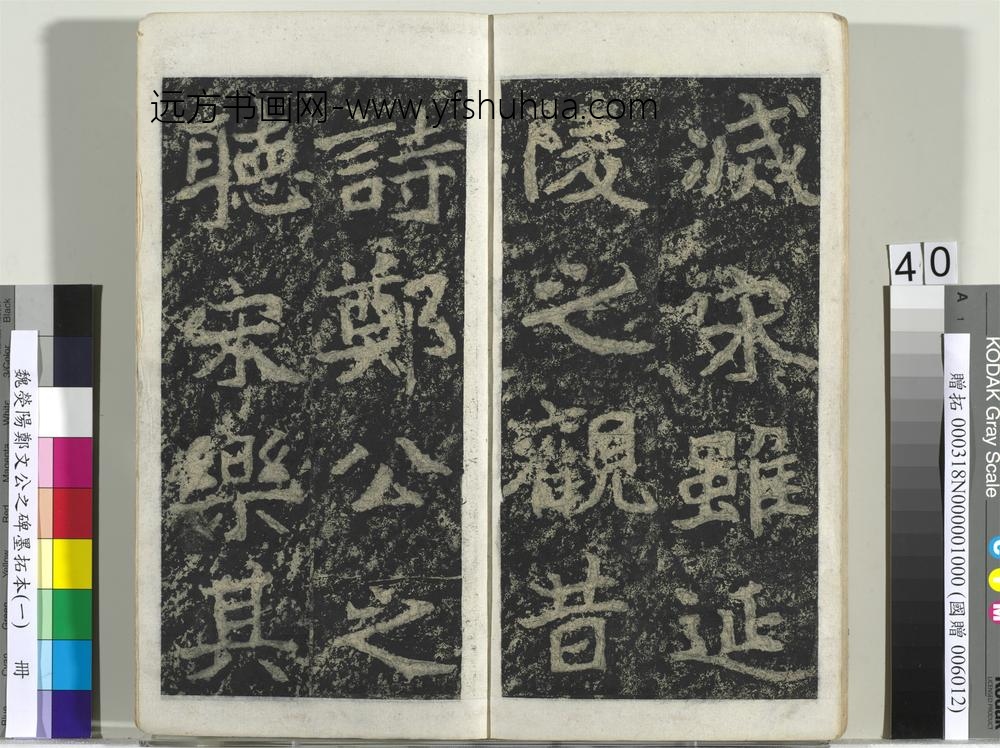 远方书画网-www.yfshuhua.com
滅宋雖延
陵之觀昔
詩鄭公之
聽宋樂其
40
魏滎陽鄭文公之碑墨拓本(一) 冊
贈拓 000318N000001000 (國贈 006012)
KODAK Gray Scale
A 1
C
Y
M
Black
3/Color
White
Magenta
Red
Yellow
Green
Cyan
Blue